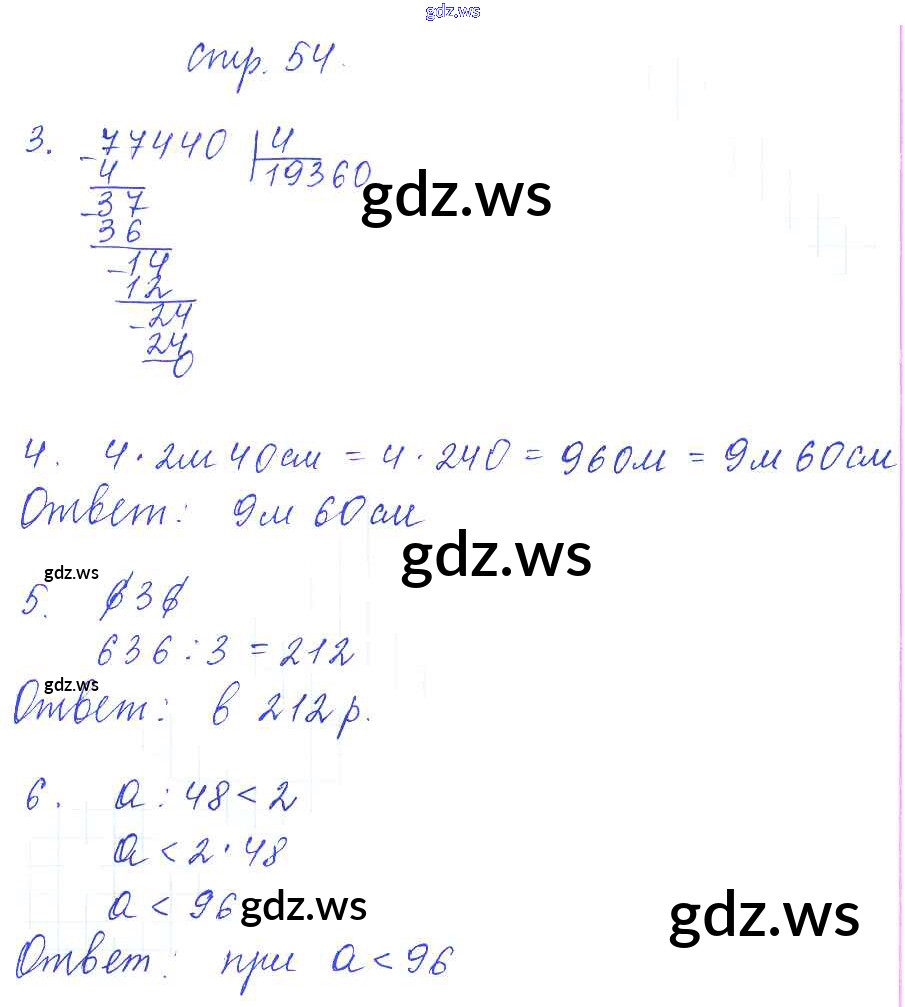 gdz.ws
стр. 54.
3. - 77440 | 4
4 19360
gdz.ws
- 37
36
- 14
12
- 24
24
0
4. 4 · 2м 40см = 4 · 240 = 960м = 9м 60см
Ответ: 9м 60см
gdz.ws
gdz.ws
5. 636
636 : 3 = 212
gdz.ws
Ответ: в 212 р.
6. a : 48 < 2
a < 2 · 48
a < 96
gdz.ws
gdz.ws
Ответ: при a < 96